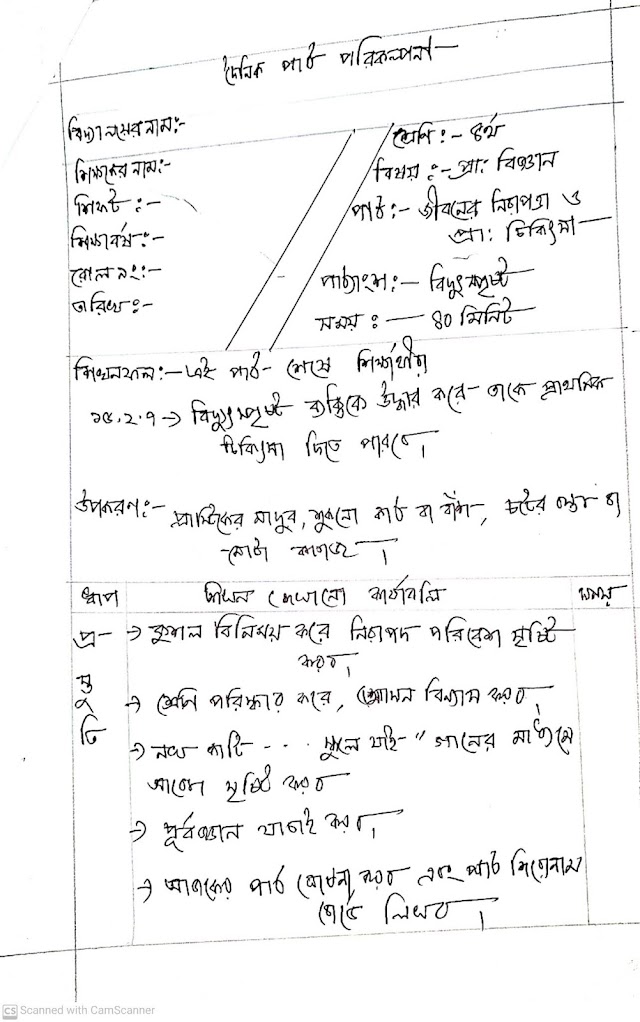 দৈনিক পাঠ পরিকল্পনা
বিদ্যালয়ের নাম:-
শিক্ষকের নাম:-
শিফট :-
শিক্ষাবর্ষ :-
রোল নং:-
তারিখ :-
শ্রেণি :- ৪র্থ
বিষয় :- প্রা: বিজ্ঞান
পাঠ :- জীবনের নিরাপত্তা ও
প্রা: চিকিৎসা
পাঠ্যাংশ :- বিদ্যুৎস্পৃষ্ট
সময় :- ৪০ মিনিট
শিখনফল :- এই পাঠ শেষে শিক্ষার্থীরা
১৫.২.৭ → বিদ্যুৎস্পৃষ্ট ব্যক্তিকে উদ্ধার করে তাকে প্রাথমিক
চিকিৎসা দিতে পারবে।
উপকরণ:- প্লাস্টিকের মাদুর, শুকনো কাঠ বা বাঁশ, চটের বস্তা বা
মোটা কাগজ।
ধাপ শিখন শেখানো কার্যাবলি সময়
প্রস্তুতি
→ কুশল বিনিময় করে নিরাপদ পরিবেশ সৃষ্টি
করব।
→ শ্রেণি পরিষ্কার করে, আসন বিন্যাস করব।
→ নখ কাটি ... স্কুলে যাই" গানের মাধ্যমে
আবেগ সৃষ্টি করব
→ পূর্বজ্ঞান যাচাই করব।
→ আজকের পাঠ ঘোষনা করব এবং পাঠ শিরোনাম
বোর্ডে লিখব।
CS Scanned with CamScanner